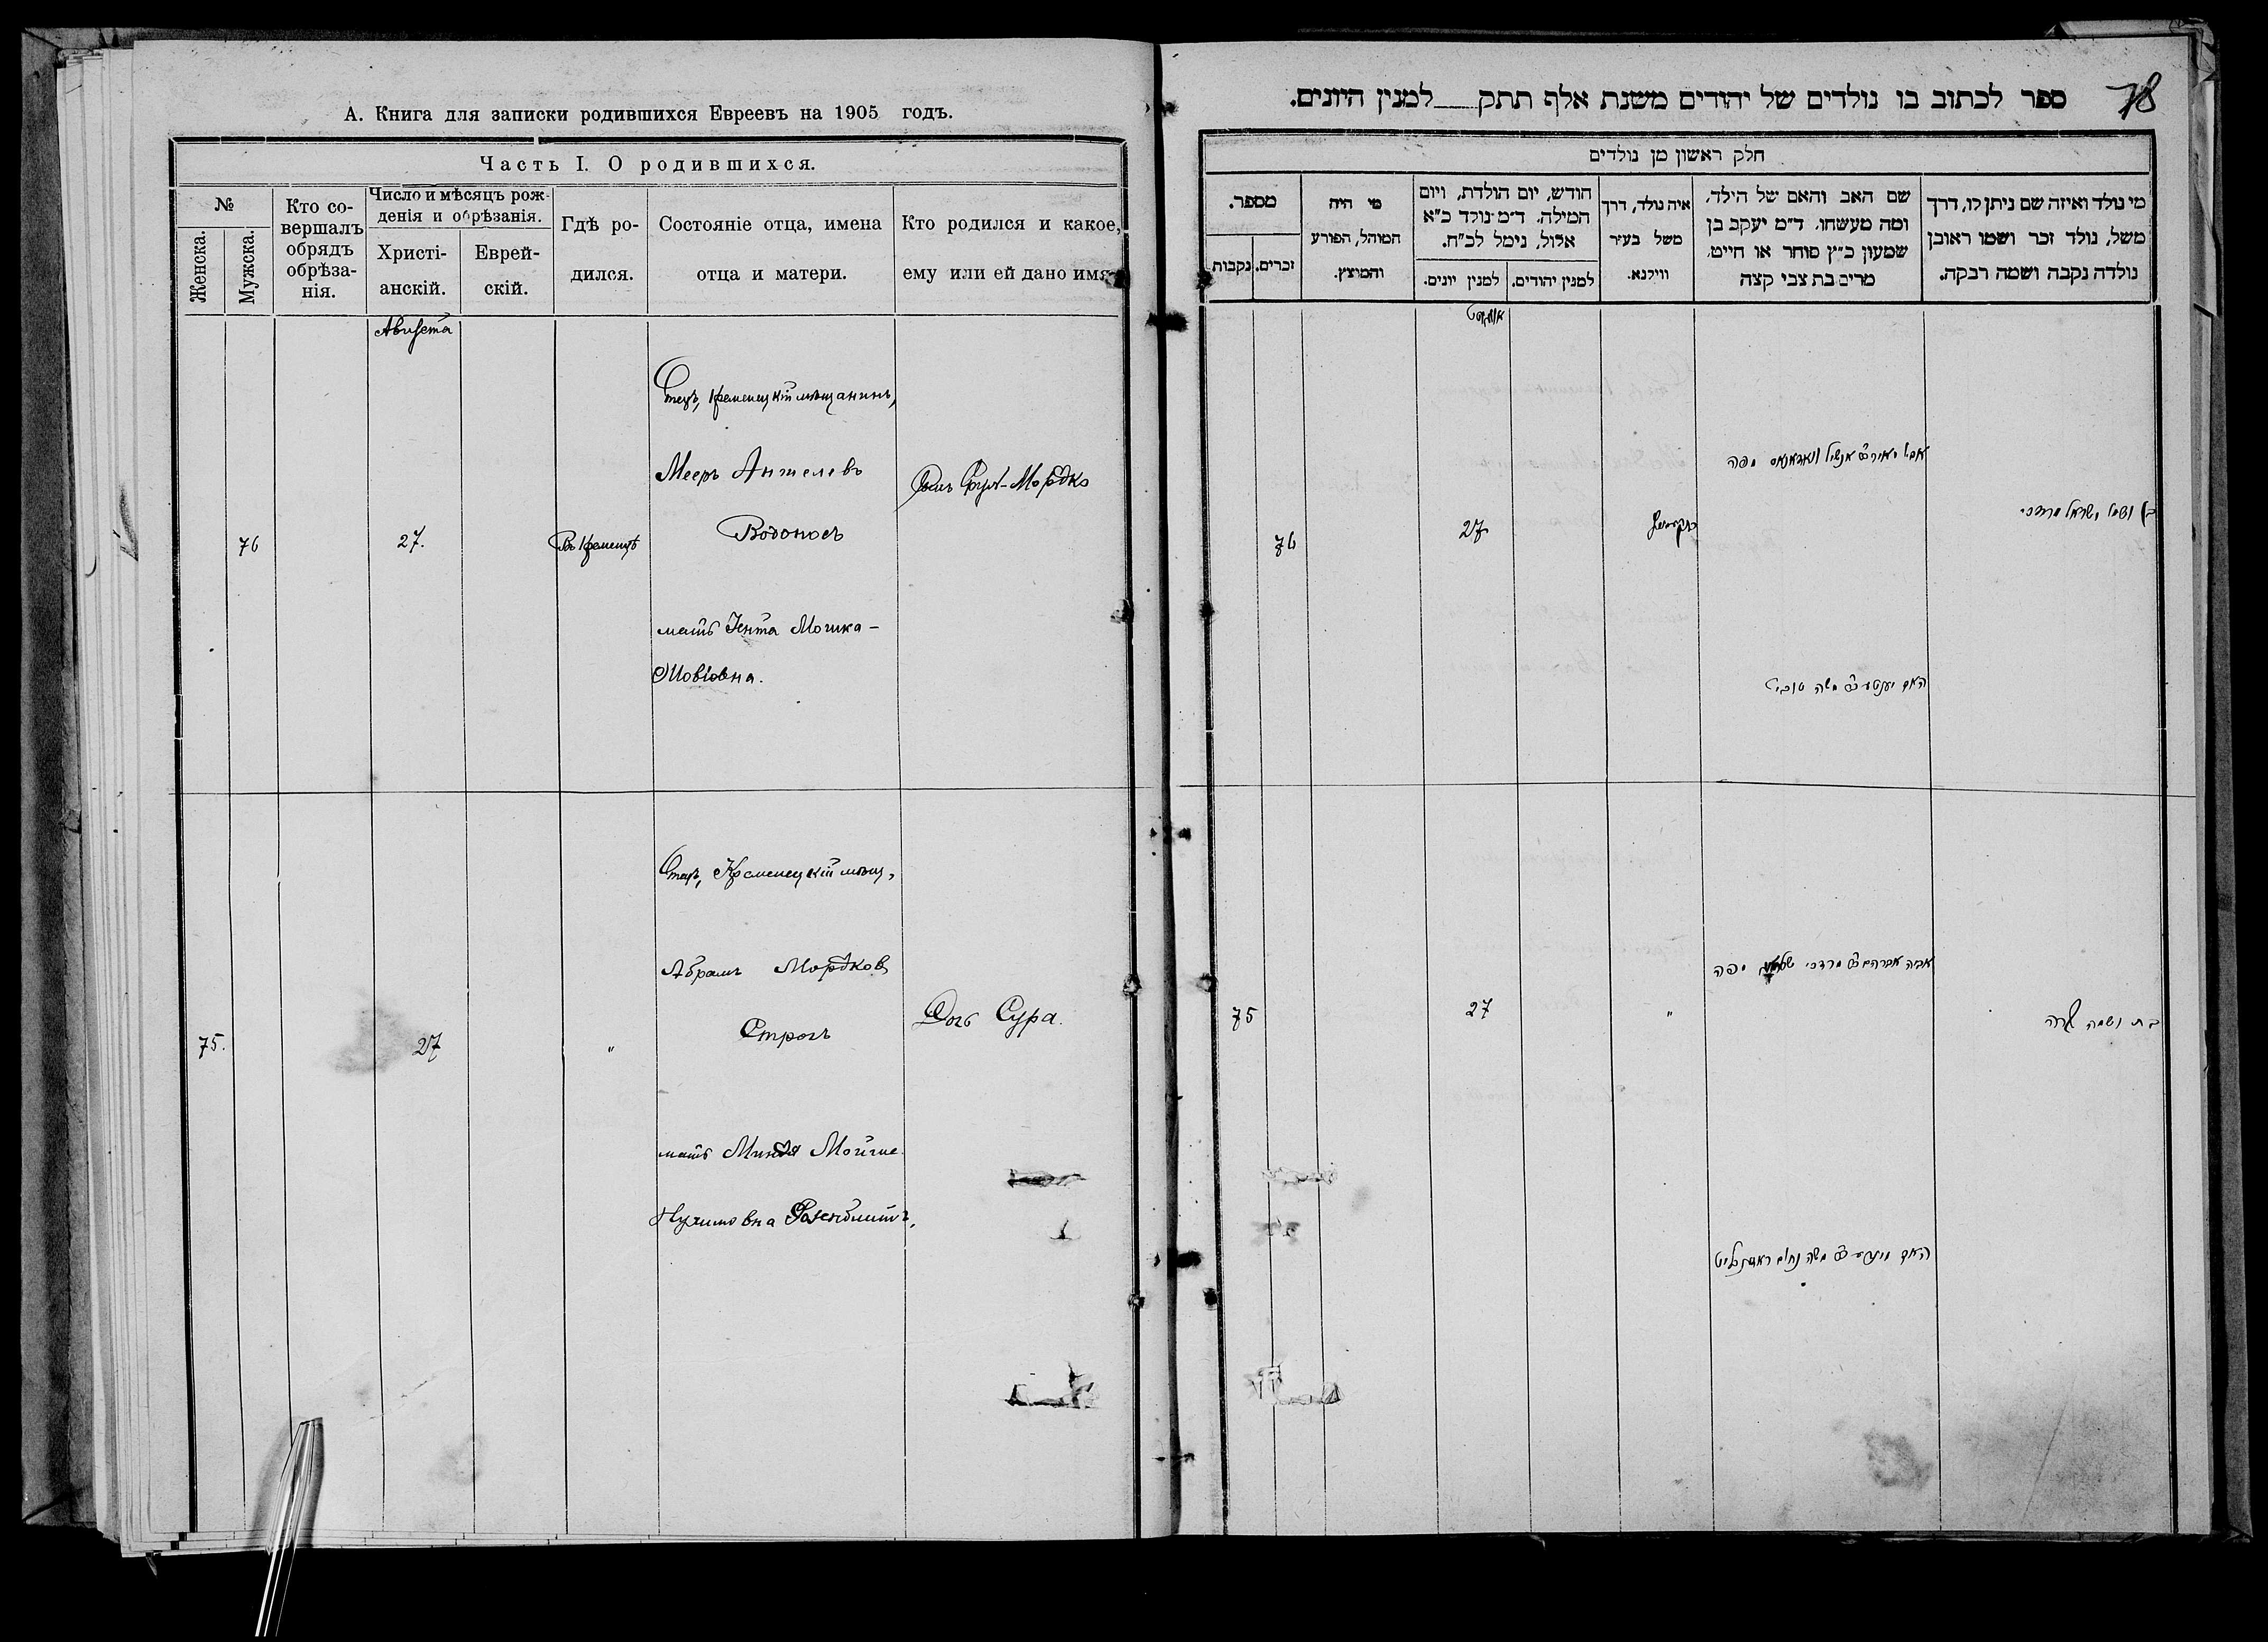 А. Книга для записки родившихся Евреевъ на 1905 годъ.
Часть I. О родившихся.
№
Женска.
Мужска.
Кто со-
вершалъ
обрядъ
обрѣза-
нія.
Число и мѣсяцъ рож-
денія и обрѣзанія.
Христі-
анскій.
Еврей-
скій.
Гдѣ ро-
дился.
Состояніе отца, имена
отца и матери.
Кто родился и какое,
ему или ей дано имя
Августа
Отецъ, Кременецкій мѣщанинъ,
Мееръ Аншелевъ
Водоносъ
76
27.
Въ Кременцѣ
Сынъ Сруль-Мордко
мать Іента Мошка-
Товіовна.
Отецъ, Кременецкій мѣщ.
Абрамъ Мордковъ
Строгъ
75.
27
"
Дочь Сура.
мать Миндя Мойше
Нухимовна Розенблитъ,
78
ספר לכתוב בו נולדים של יהודים משנת אלף תתק למנין היונים.
חלק ראשון מן נולדים
מספר.
נקבות
זכרים.
מי היה
המוהל, הפורע
והמוצץ.
חודש, יום הולדת, ויום
המילה. ד״מ נולד כ״א
אלול, נימל לכ״ח.
למנין יהודים.
למנין יונים.
איה נולד, דרך
משל בעיר
ווילנא.
שם האב והאם של הילד,
ומה מעשהו. ד״מ יעקב בן
שמעון כ״ץ סוחר או חייט,
מרים בת צבי קצה
מי נולד ואיזה שם ניתן לו, דרך
משל, נולד זכר ושמו ראובן
נולדה נקבה ושמה רבקה.
אויגוסט
76
27
בן ושמו ישראל מרדכי
75
27
"
בת ושמה שרה